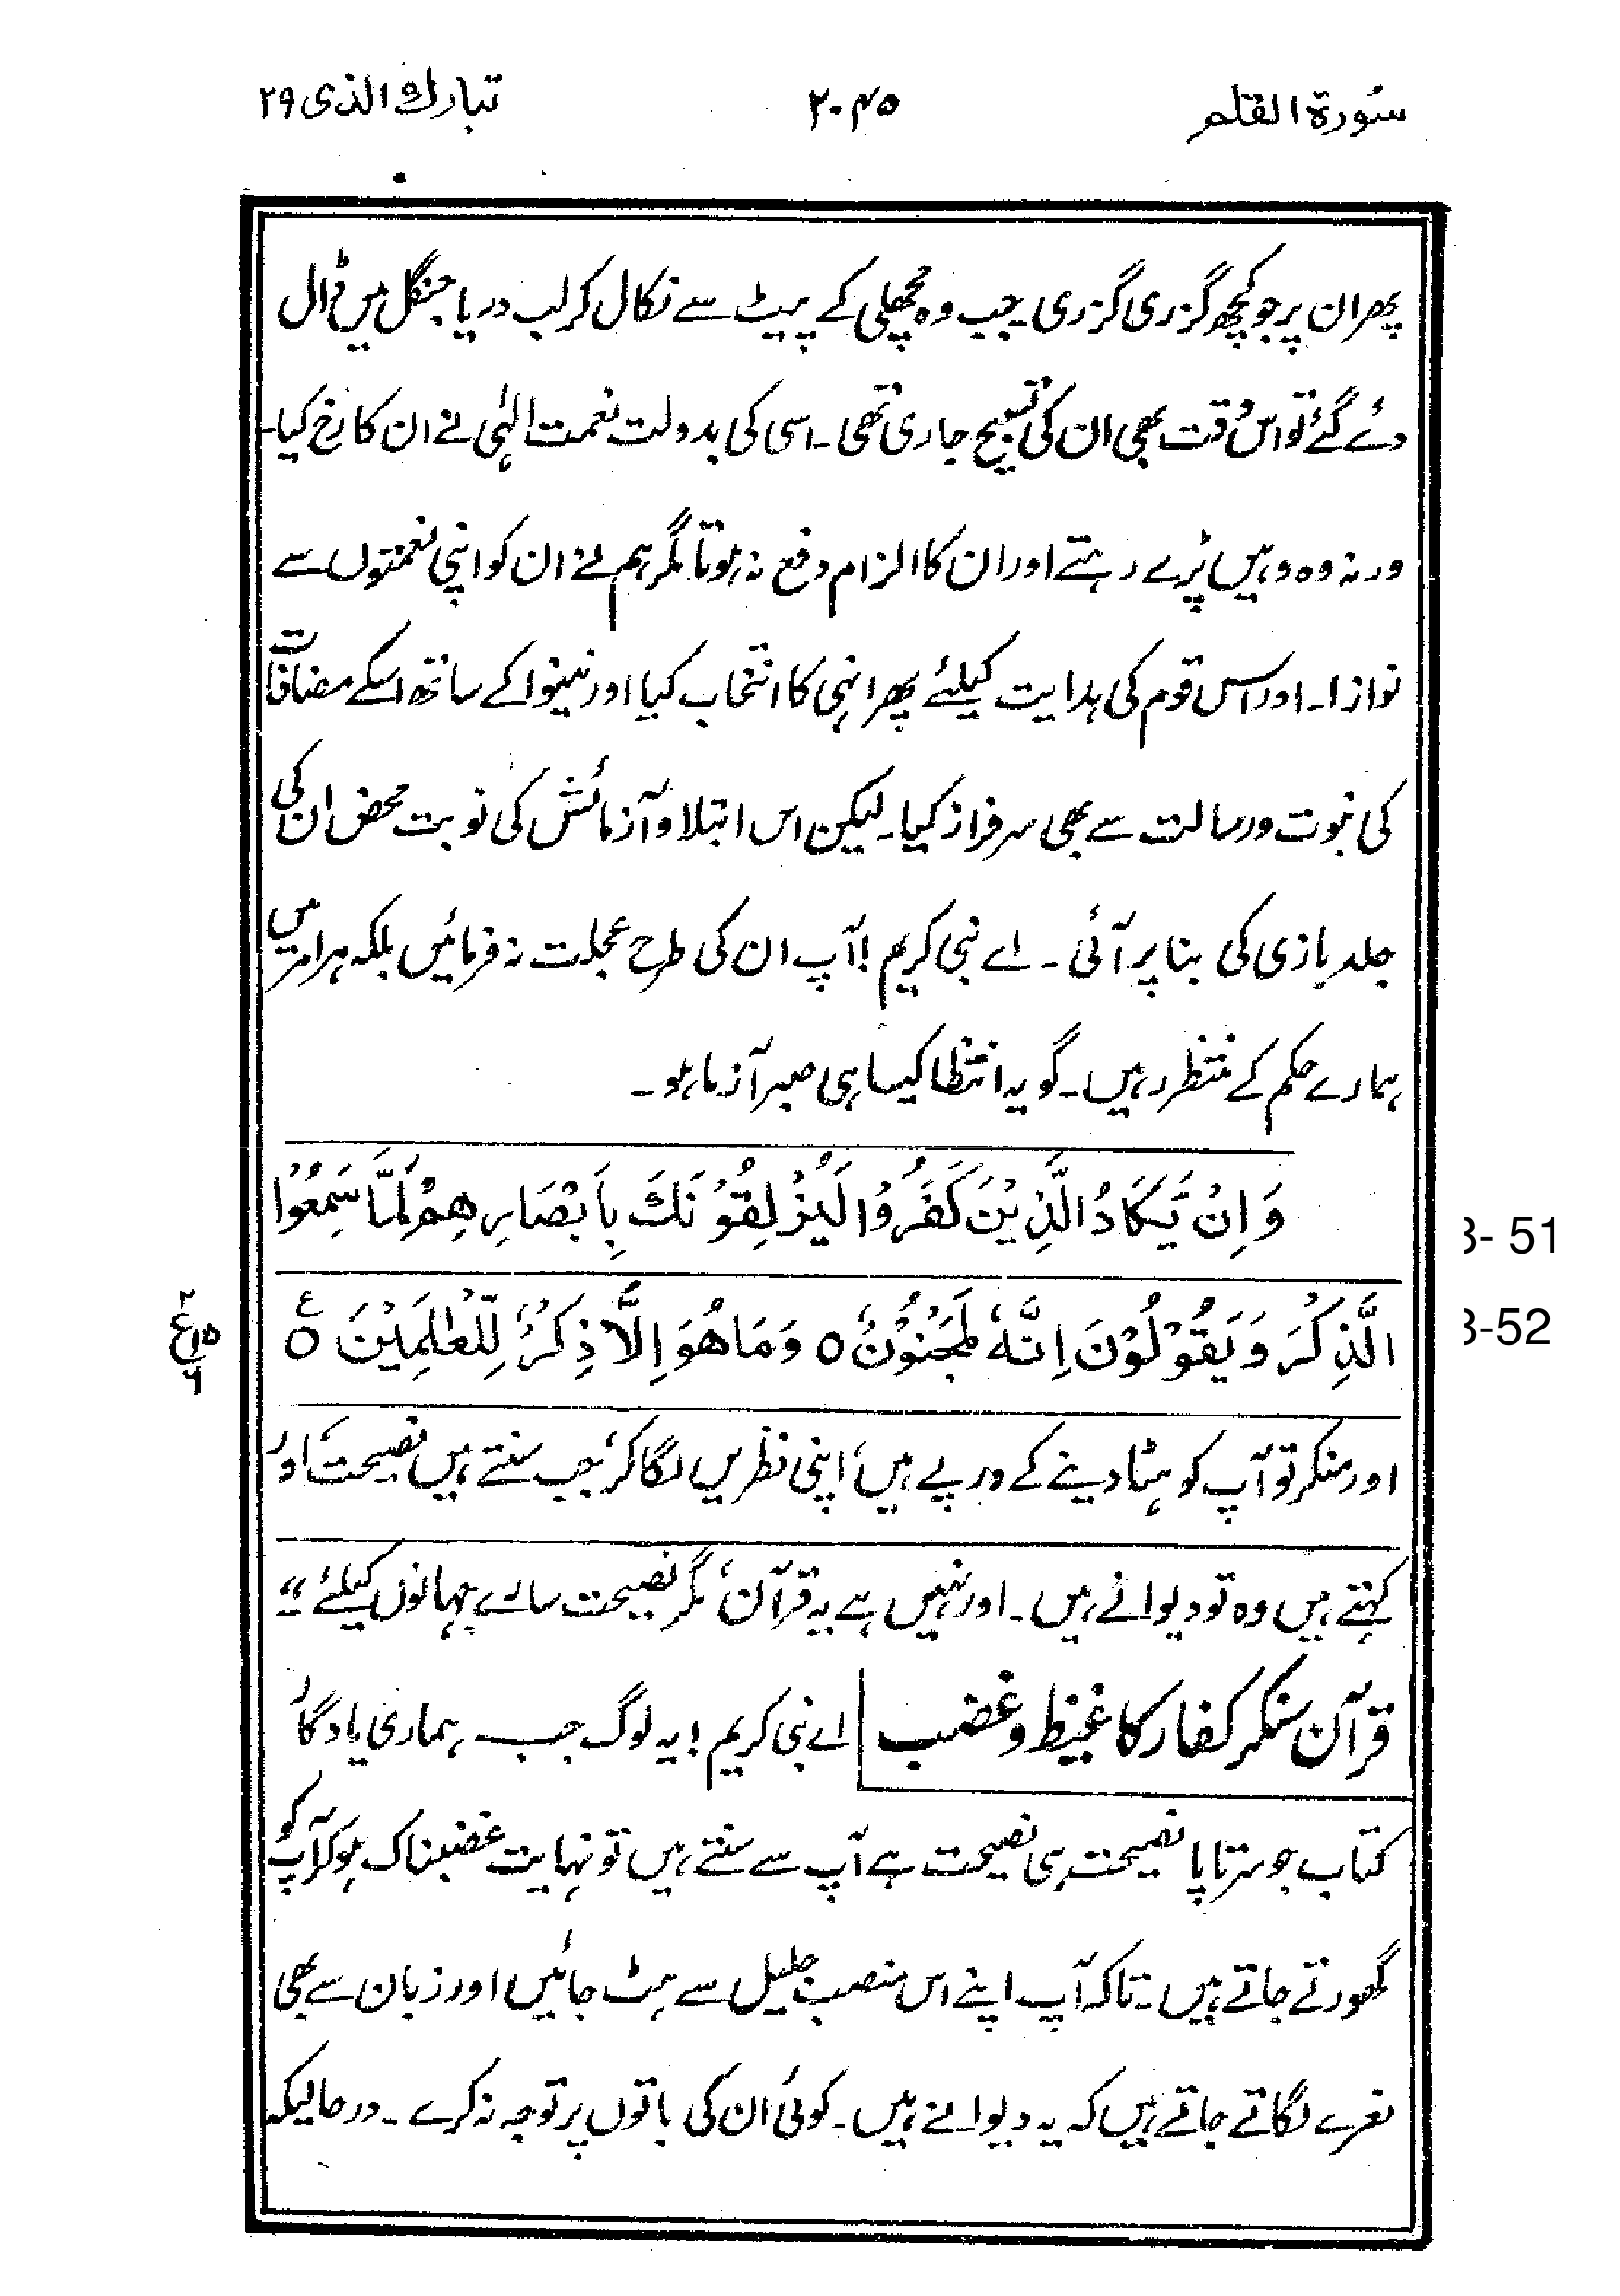 سُورة القلم
۲۰۴۵
تبارك الذى ۲۹
پھر ان پر جو کچھ گزری گزری۔ جب وہ مچھلی کے پیٹ سے نکال کر لب دریا جنگل میں ڈال
دئے گئے تو اس وقت بھی ان کی تسبیح جاری تھی۔ اسی کی بدولت نعمت الہٰی نے ان کا رخ کیا۔
ورنہ وہ وہیں پڑے رہتے اور ان کا الزام دفع نہ ہوتا۔ مگر ہم نے ان کو اپنی نعمتوں سے
نوازا۔ اور اس قوم کی ہدایت کیلئے پھر انہی کا انتخاب کیا اور نینوا کے ساتھ اسکے مضافات
کی نبوت ورسالت سے بھی سرفراز کیا۔ لیکن اس ابتلا و آزمائش کی نوبت محض ان کی
جلد بازی کی بنا پر آئی۔ اے نبی کریم! آپ ان کی طرح عجلت نہ فرمائیں بلکہ ہر امر میں
ہمارے حکم کے منتظر رہیں۔ گو یہ انتظا کیسا ہی صبر آزما ہو۔
وَاِنْ يَّكَادُ الَّذِيْنَ كَفَرُوْا لَيُزْلِقُوْنَكَ بِاَبْصَارِهِمْ لَمَّا سَمِعُوا
3- 51
الذِّكْرَ وَيَقُوْلُوْنَ اِنَّهٗ لَمَجْنُوْنٌ ۝ وَمَا هُوَ اِلَّا ذِكْرٌ لِّلْعٰلَمِيْنَ ۝ ع
3-52
اور منکر تو آپ کو ہٹا دینے کے درپے ہیں، اپنی نظریں لگا کر، جب سنتے ہیں نصیحت، اور
کہتے ہیں وہ تو دیوانے ہیں۔ اور نہیں ہے یہ قرآن، مگر نصیحت سارے جہانوں کیلئے ؎
قرآن سنکر کفار کا غیظ و غضب | اے نبی کریم! یہ لوگ جب ہماری یادگار
کتاب جو سرتا پا نصیحت ہی نصیحت ہے آپ سے سنتے ہیں تو نہایت غضبناک ہو کر آپ کو
گھورتے جاتے ہیں۔ تاکہ آپ اپنے اس منصب جلیل سے ہٹ جائیں اور زبان سے بھی
نعرے لگاتے جاتے ہیں کہ یہ دیوانے ہیں۔ کوئی ان کی باتوں پر توجہ نہ کرے۔ درحالیکہ